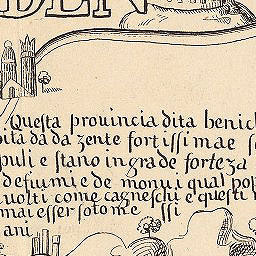 DEN
Questa prouincia dita benich
bita da da zente fortissi mae se
puli e stano in grade forteza
defiumi e de monui qual pop
uolti come cagneschi e questi
mai esser soto me ssi
ani